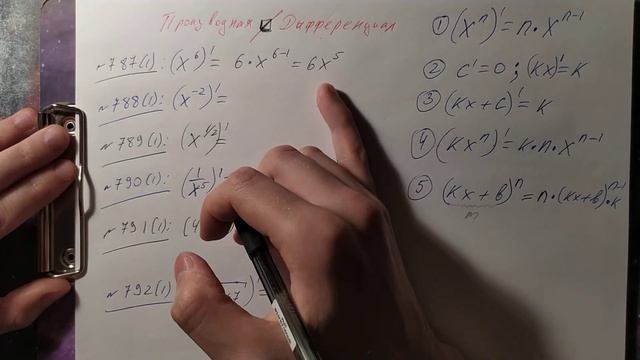 Производная Дифференциал
№787(1): (x⁶)' = 6·x⁶⁻¹ = 6x⁵
№788(1): (x⁻²)' =
№789(1): (x^{1/2})' =
№790(1): (1/x⁵)' =
№791(1): (4
№792(1)
① (xⁿ)' = n·xⁿ⁻¹
② c' = 0 ; (kx)' = k
③ (kx + c)' = k
④ (kxⁿ)' = k·n·xⁿ⁻¹
⑤ (kx + b)ⁿ = n·(kx+b)ⁿ⁻¹·k